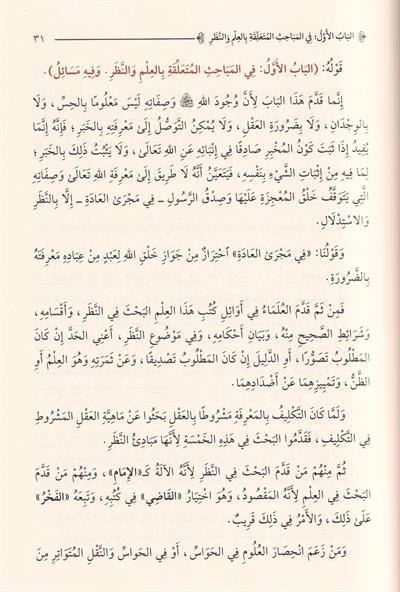 ﴿ البَابُ الأَوَّلُ: فِي المَبَاحِثِ المُتَعَلِّقَةِ بِالعِلْمِ وَالنَّظَرِ ﴾ ٣١
قَوْلُهُ: (البَابُ الأَوَّلُ: فِي المَبَاحِثِ المُتَعَلِّقَةِ بِالعِلْمِ وَالنَّظَرِ. وَفِيهِ مَسَائِلُ).
إِنَّما قَدَّمَ هَذَا البَابَ لِأَنَّ وُجُودَ اللهِ ﷻ وَصِفَاتِهِ لَيْسَ مَعْلُومًا بِالحِسِّ، وَلَا
بِالوِجْدَانِ، وَلَا بِضَرُورَةِ العَقْلِ، وَلَا يُمْكِنُ التَّوَصُّلُ إِلَى مَعْرِفَتِهِ بِالخَبَرِ؛ فَإِنَّهُ إِنَّمَا
يُفِيدُ إِذَا ثَبَتَ كَوْنُ المُخْبِرِ صَادِقًا فِي إِثْبَاتِهِ عَنِ اللهِ تَعَالَى، وَلَا يَثْبُتُ ذَلِكَ بِالخَبَرِ؛
لِمَا فِيهِ مِنْ إِثْبَاتِ الشَّيْءِ بِنَفْسِهِ، فَيَتَعَيَّنُ أَنَّهُ لَا طَرِيقَ إِلَى مَعْرِفَةِ اللهِ تَعَالَى وَصِفَاتِهِ
الَّتِي يَتَوَقَّفُ خَلْقُ المُعْجِزَةِ عَلَيْهَا وَصِدْقُ الرَّسُولِ ـ فِي مَجْرَى العَادَةِ ـ إِلَّا بِالنَّظَرِ
وَالاسْتِدْلَالِ.
وَقَوْلُنَا: «فِي مَجْرَى العَادَةِ» احْتِرَازٌ مِنْ جَوَازِ خَلْقِ اللهِ لِعَبْدٍ مِنْ عِبَادِهِ مَعْرِفَتَهُ
بِالضَّرُورَةِ.
فَمِنْ ثَمَّ قَدَّمَ العُلَمَاءُ فِي أَوَائِلِ كُتُبِ هَذَا العِلْمِ البَحْثَ فِي النَّظَرِ، وَأَقْسَامِهِ،
وَشَرَائِطِ الصَّحِيحِ مِنْهُ، وَبَيَانِ أَحْكَامِهِ، وَفِي مَوْضُوعِ النَّظَرِ، أَعْنِي الحَدَّ إِنْ كَانَ
المَطْلُوبُ تَصَوُّرًا، أَوِ الدَّلِيلَ إِنْ كَانَ المَطْلُوبُ تَصْدِيقًا، وَعَنْ ثَمَرَتِهِ وَهُوَ العِلْمُ أَوِ
الظَّنُّ، وَتَمْيِيزِهِمَا عَنْ أَضْدَادِهِمَا.
وَلَمَّا كَانَ التَّكْلِيفُ بِالمَعْرِفَةِ مَشْرُوطًا بِالعَقْلِ بَحَثُوا عَنْ مَاهِيَّةِ العَقْلِ المَشْرُوطِ
فِي التَّكْلِيفِ، فَقَدَّمُوا البَحْثَ فِي هَذِهِ الخَمْسَةِ لِأَنَّهَا مَبَادِئُ النَّظَرِ.
ثُمَّ مِنْهُمْ مَنْ قَدَّمَ البَحْثَ فِي النَّظَرِ لِأَنَّهُ الآلَةُ كَـ«الإِمَامِ»، وَمِنْهُمْ مَنْ قَدَّمَ
البَحْثَ فِي العِلْمِ لِأَنَّهُ المَقْصُودُ، وَهُوَ اخْتِيَارُ «القَاضِي» فِي كُتُبِهِ، وَتَبِعَهُ «الفَخْرُ»
عَلَىٰ ذَلِكَ، وَالأَمْرُ فِي ذَلِكَ قَرِيبٌ.
وَمَنْ زَعَمَ انْحِصَارَ العُلُومِ فِي الحَوَاسِّ، أَوْ فِي الحَواسِّ وَالنَّقْلِ المُتَوَاتِرِ مِنَ